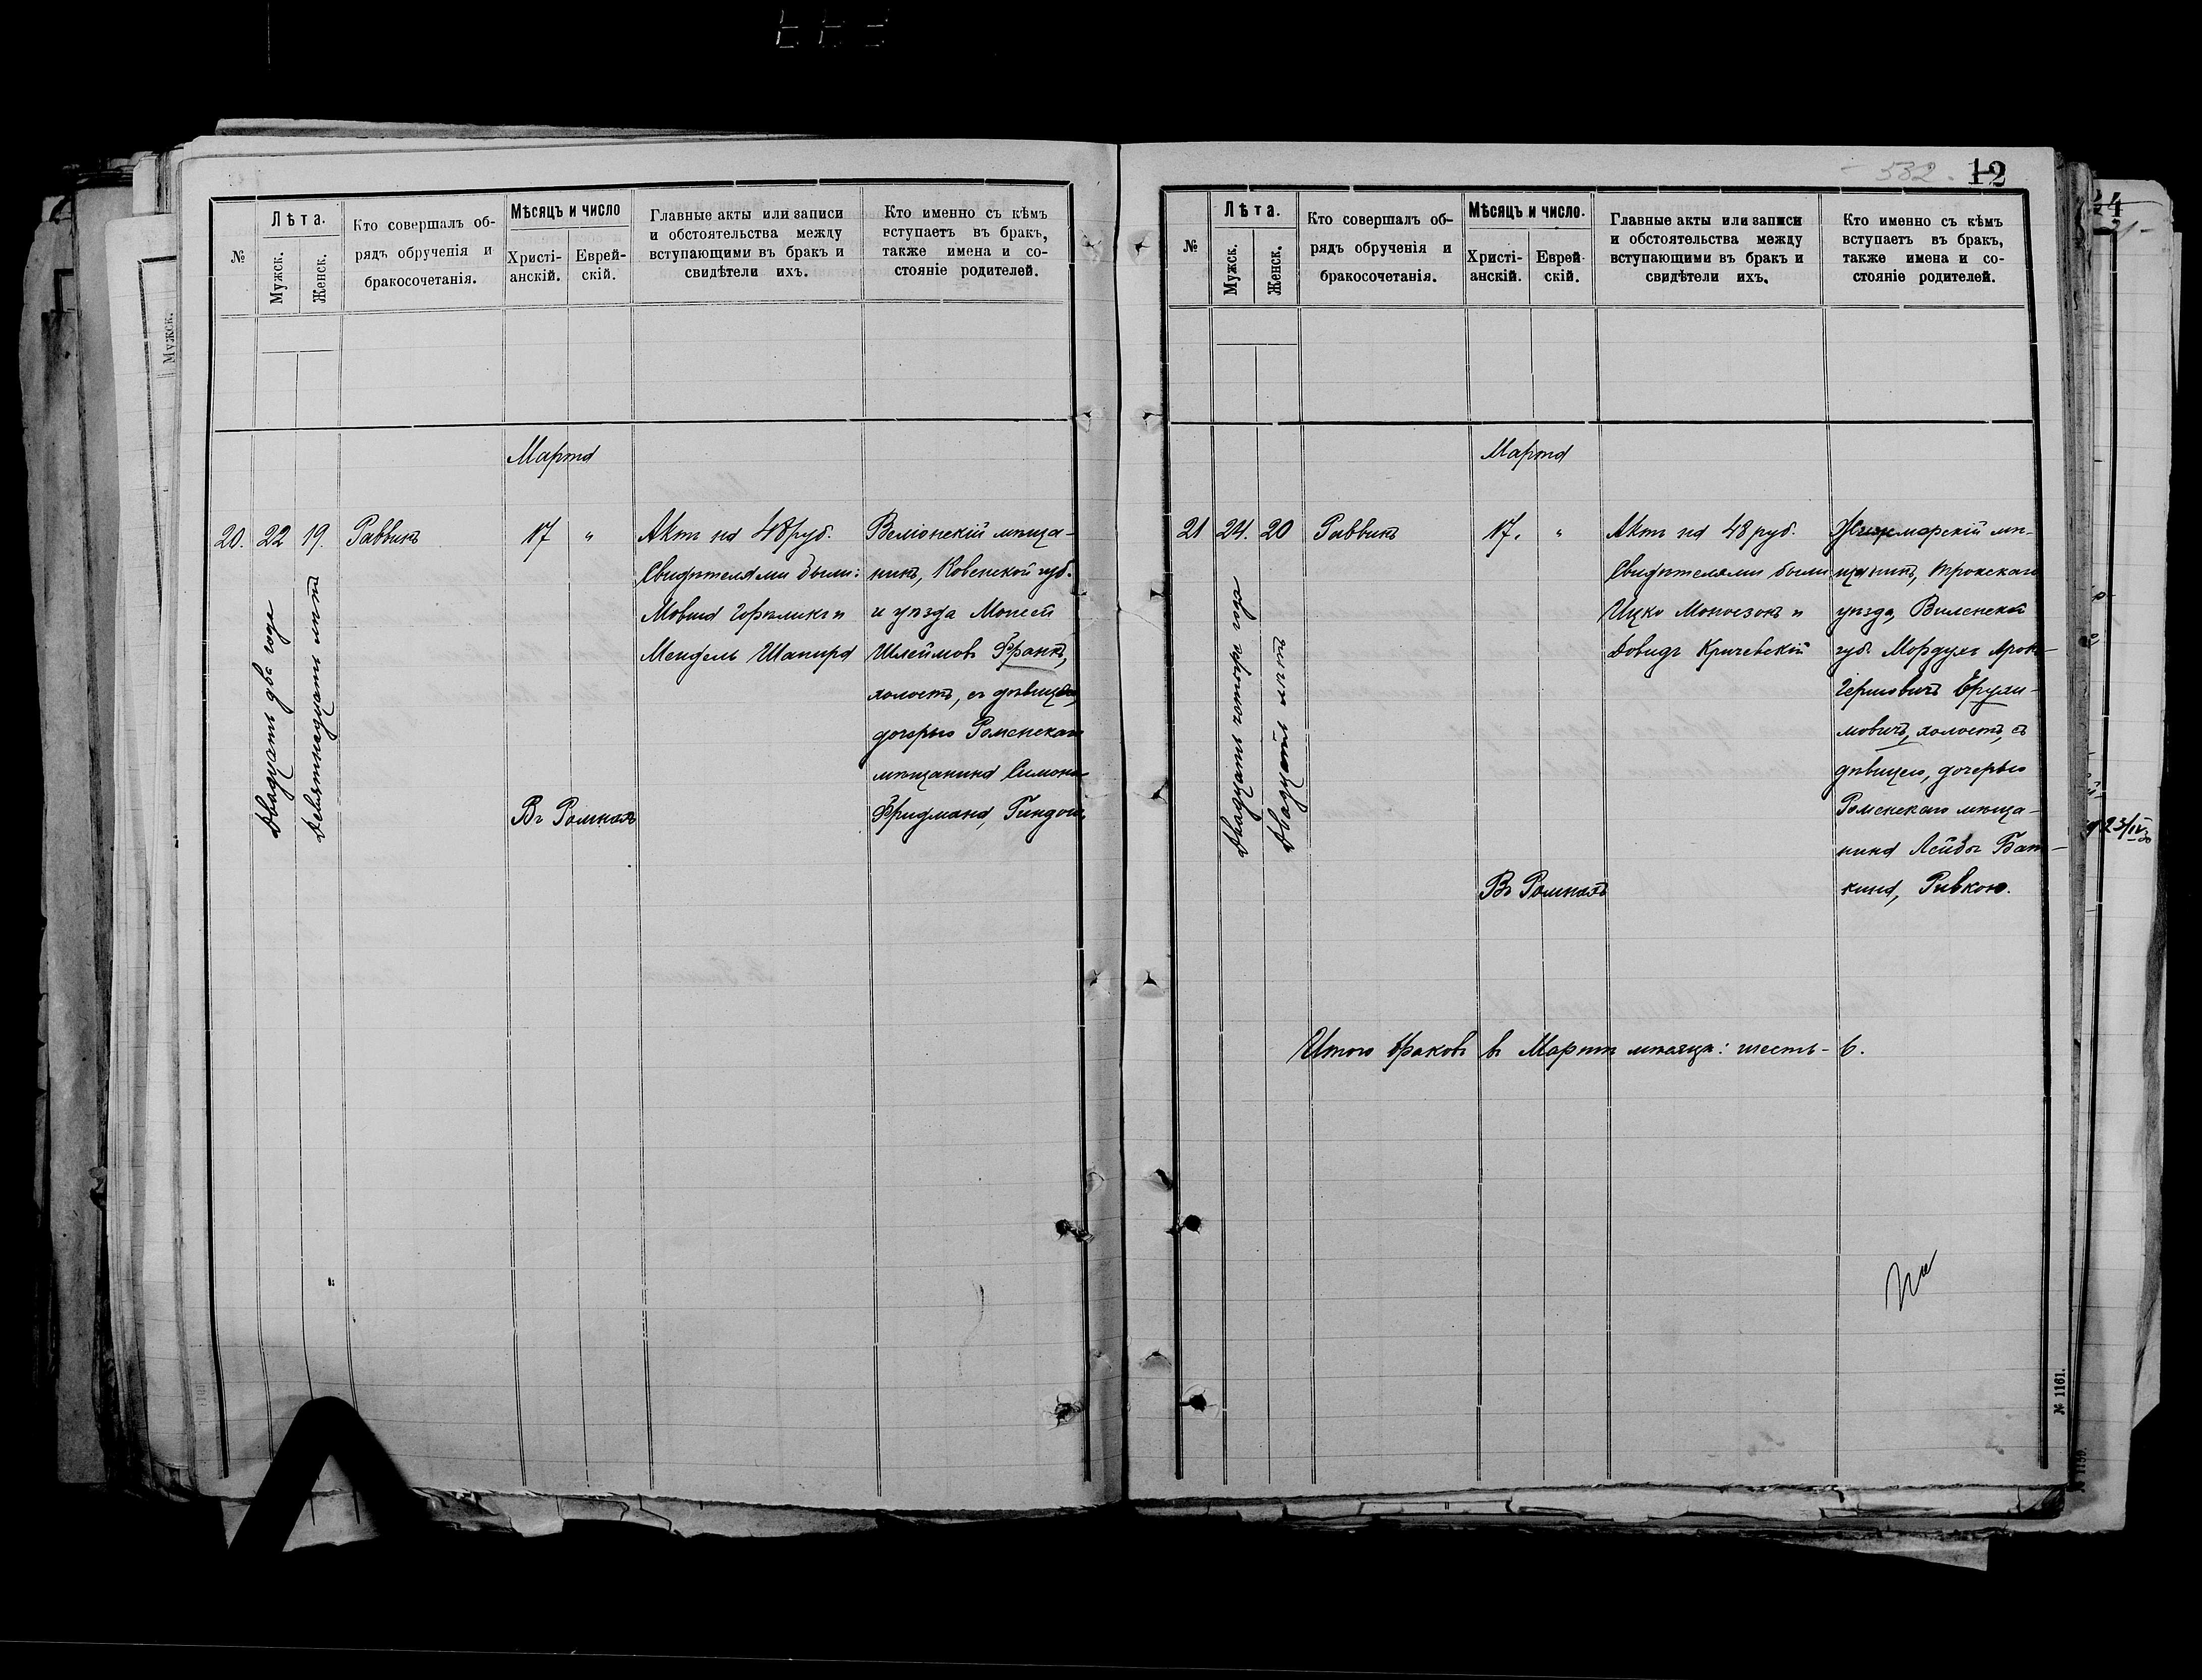 №
Лѣта.
Мужск.
Женск.
Кто совершалъ об-
рядъ обрученія и
бракосочетанія.
Мѣсяцъ и число
Христі-
анскій.
Еврей-
скій.
Главные акты или записи
и обстоятельства между
вступающими въ бракъ и
свидѣтели ихъ.
Кто именно съ кѣмъ
вступаетъ въ бракъ,
также имена и со-
стояніе родителей.
Марта
20. 22 19. Раввинъ 17 "
Двадцать два года
Девятнадцать лѣтъ
Въ Ромнахъ
Актъ на 48 руб.
Свидѣтелями были:
Мовша Гореликъ и
Мендель Шапиро
Веліонскій мѣща-
нинъ, Ковенской губ.
и уѣзда Моисей
Шлеймовъ Франкъ,
холостъ, съ дѣвицею,
дочерью Роменскаго
мѣщанина Симона
Фридмана, Гиндою.
532. 12
№
Лѣта.
Мужск.
Женск.
Кто совершалъ об-
рядъ обрученія и
бракосочетанія.
Мѣсяцъ и число.
Христі-
анскій.
Еврей-
скій.
Главные акты или записи
и обстоятельства между
вступающими въ бракъ и
свидѣтели ихъ.
Кто именно съ кѣмъ
вступаетъ въ бракъ,
также имена и со-
стояніе родителей.
Марта
21 24. 20 Раввинъ 17. "
Двадцать четыре года
Двадцать лѣтъ
Въ Ромнахъ
Актъ на 48 руб.
Свидѣтелями были
Ицко Моносзонъ и
Довидъ Кричевскій
Жижморскій мѣ-
щанинъ, Трокскаго
уѣзда, Виленской
губ. Мордухъ Аронъ-
Гершовичъ Ерухи-
мовичъ, холостъ, съ
дѣвицею, дочерью
Роменскаго мѣща-
нина Лейбы Бат-
кина, Ривкою.
Итого браковъ въ Мартѣ мѣсяцѣ: шесть - 6.
№ 1161.